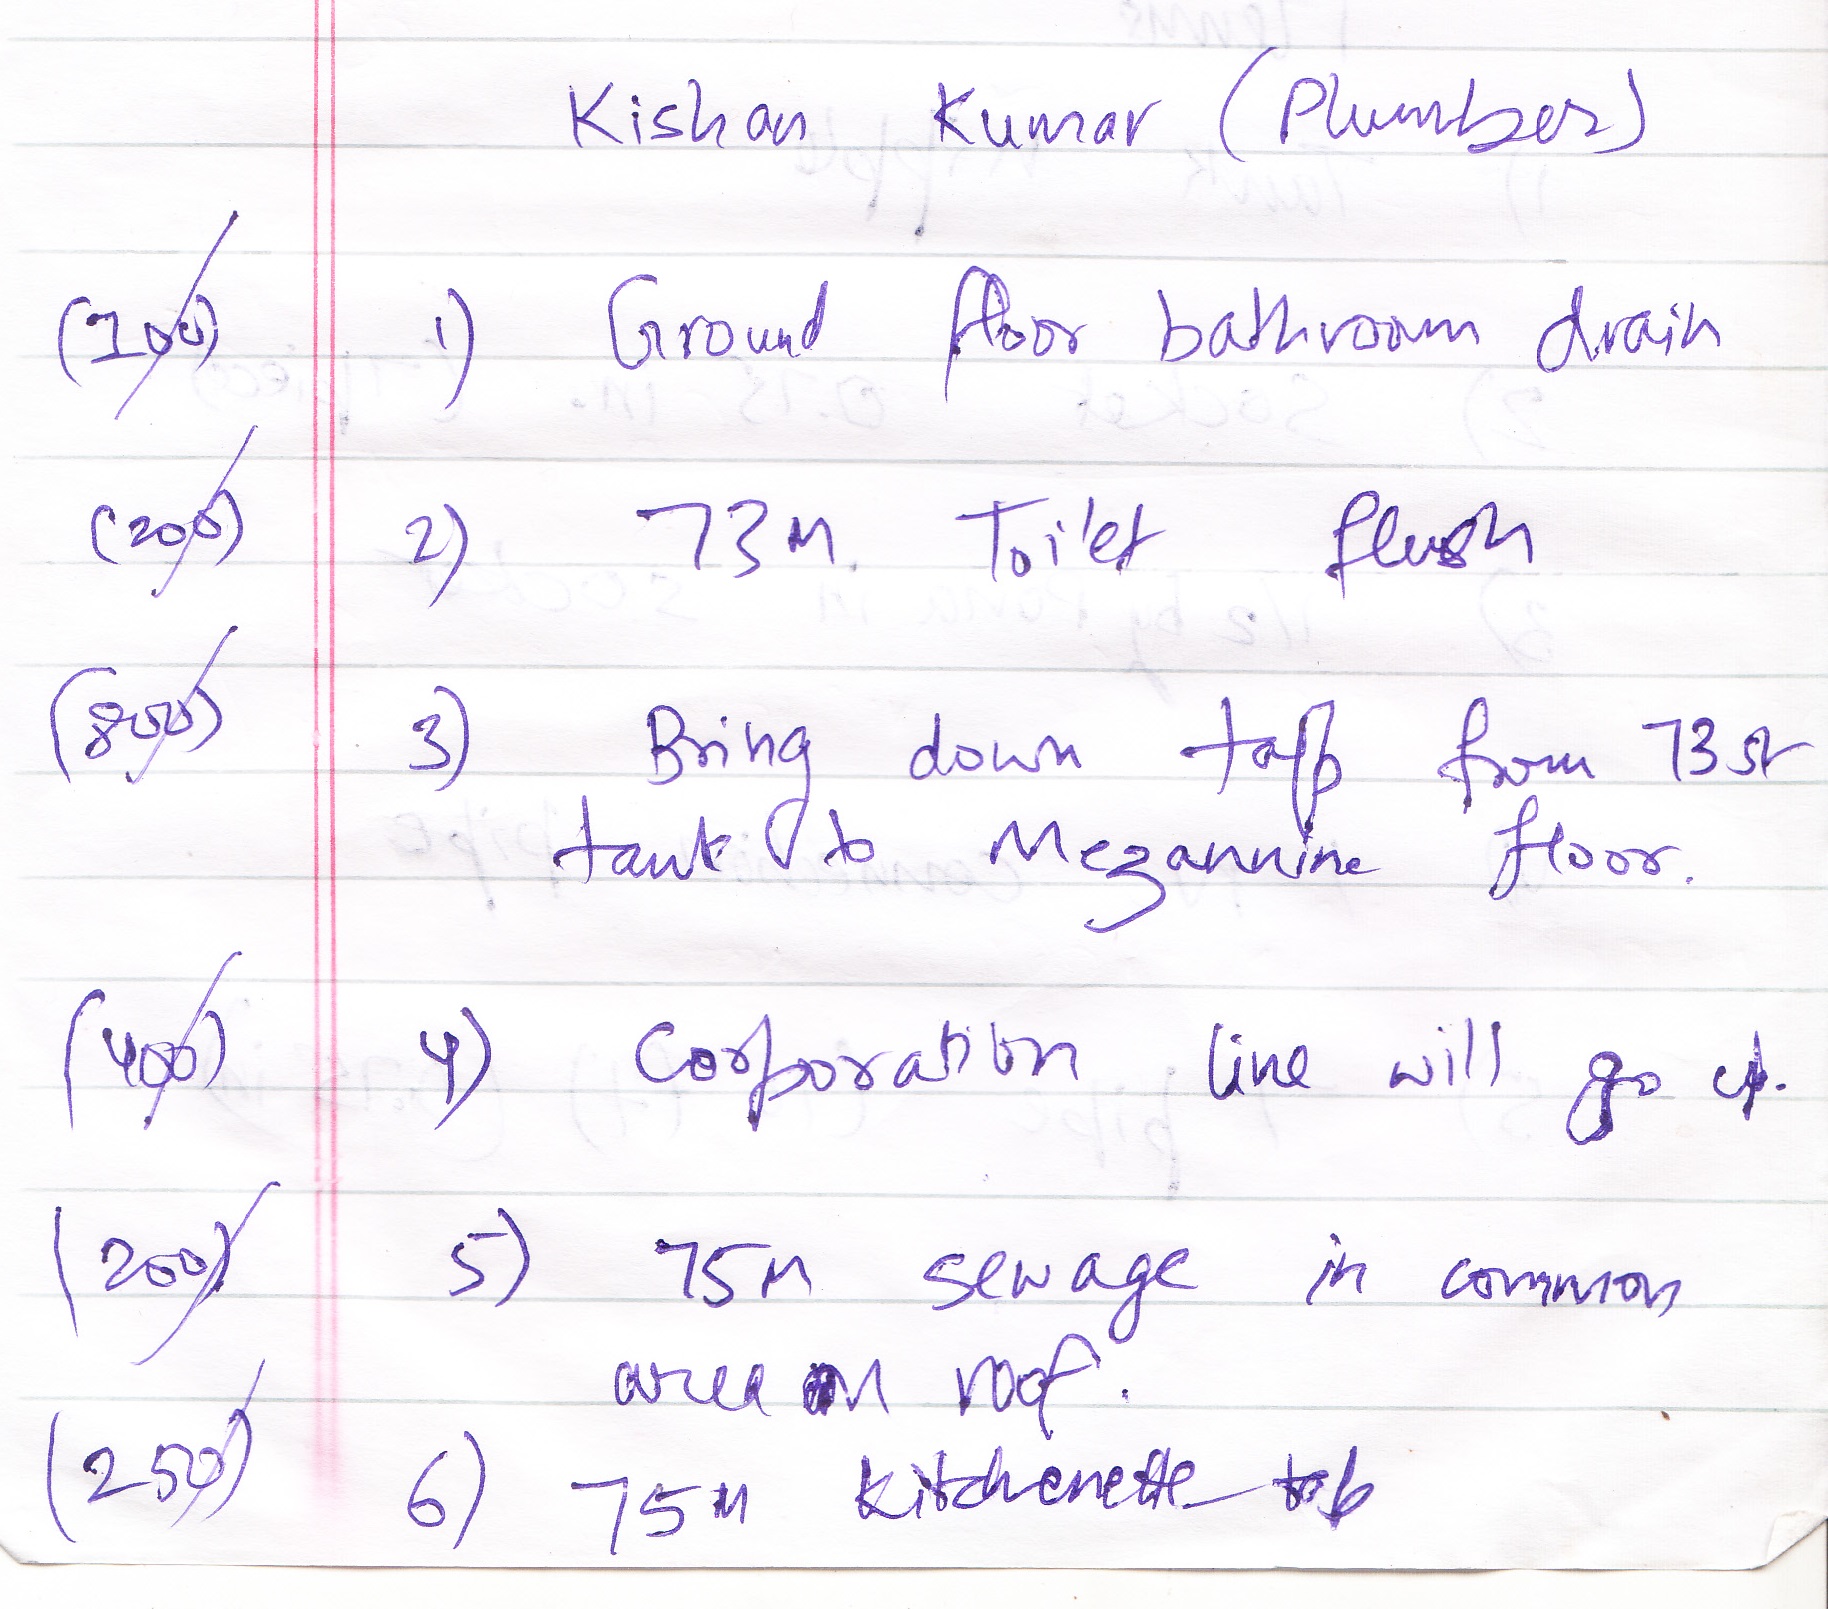 Kishan Kumar (Plumber)
(100) 1) Ground floor bathroom drain
(200) 2) 73M Toilet flush
(800) 3) Bring down tapp from 73 st
tank to Mezannine floor.
(400) 4) Corporation line will go up.
(200) 5) 75M sewage in common
area on roof.
(250) 6) 75M Kitchenette tab